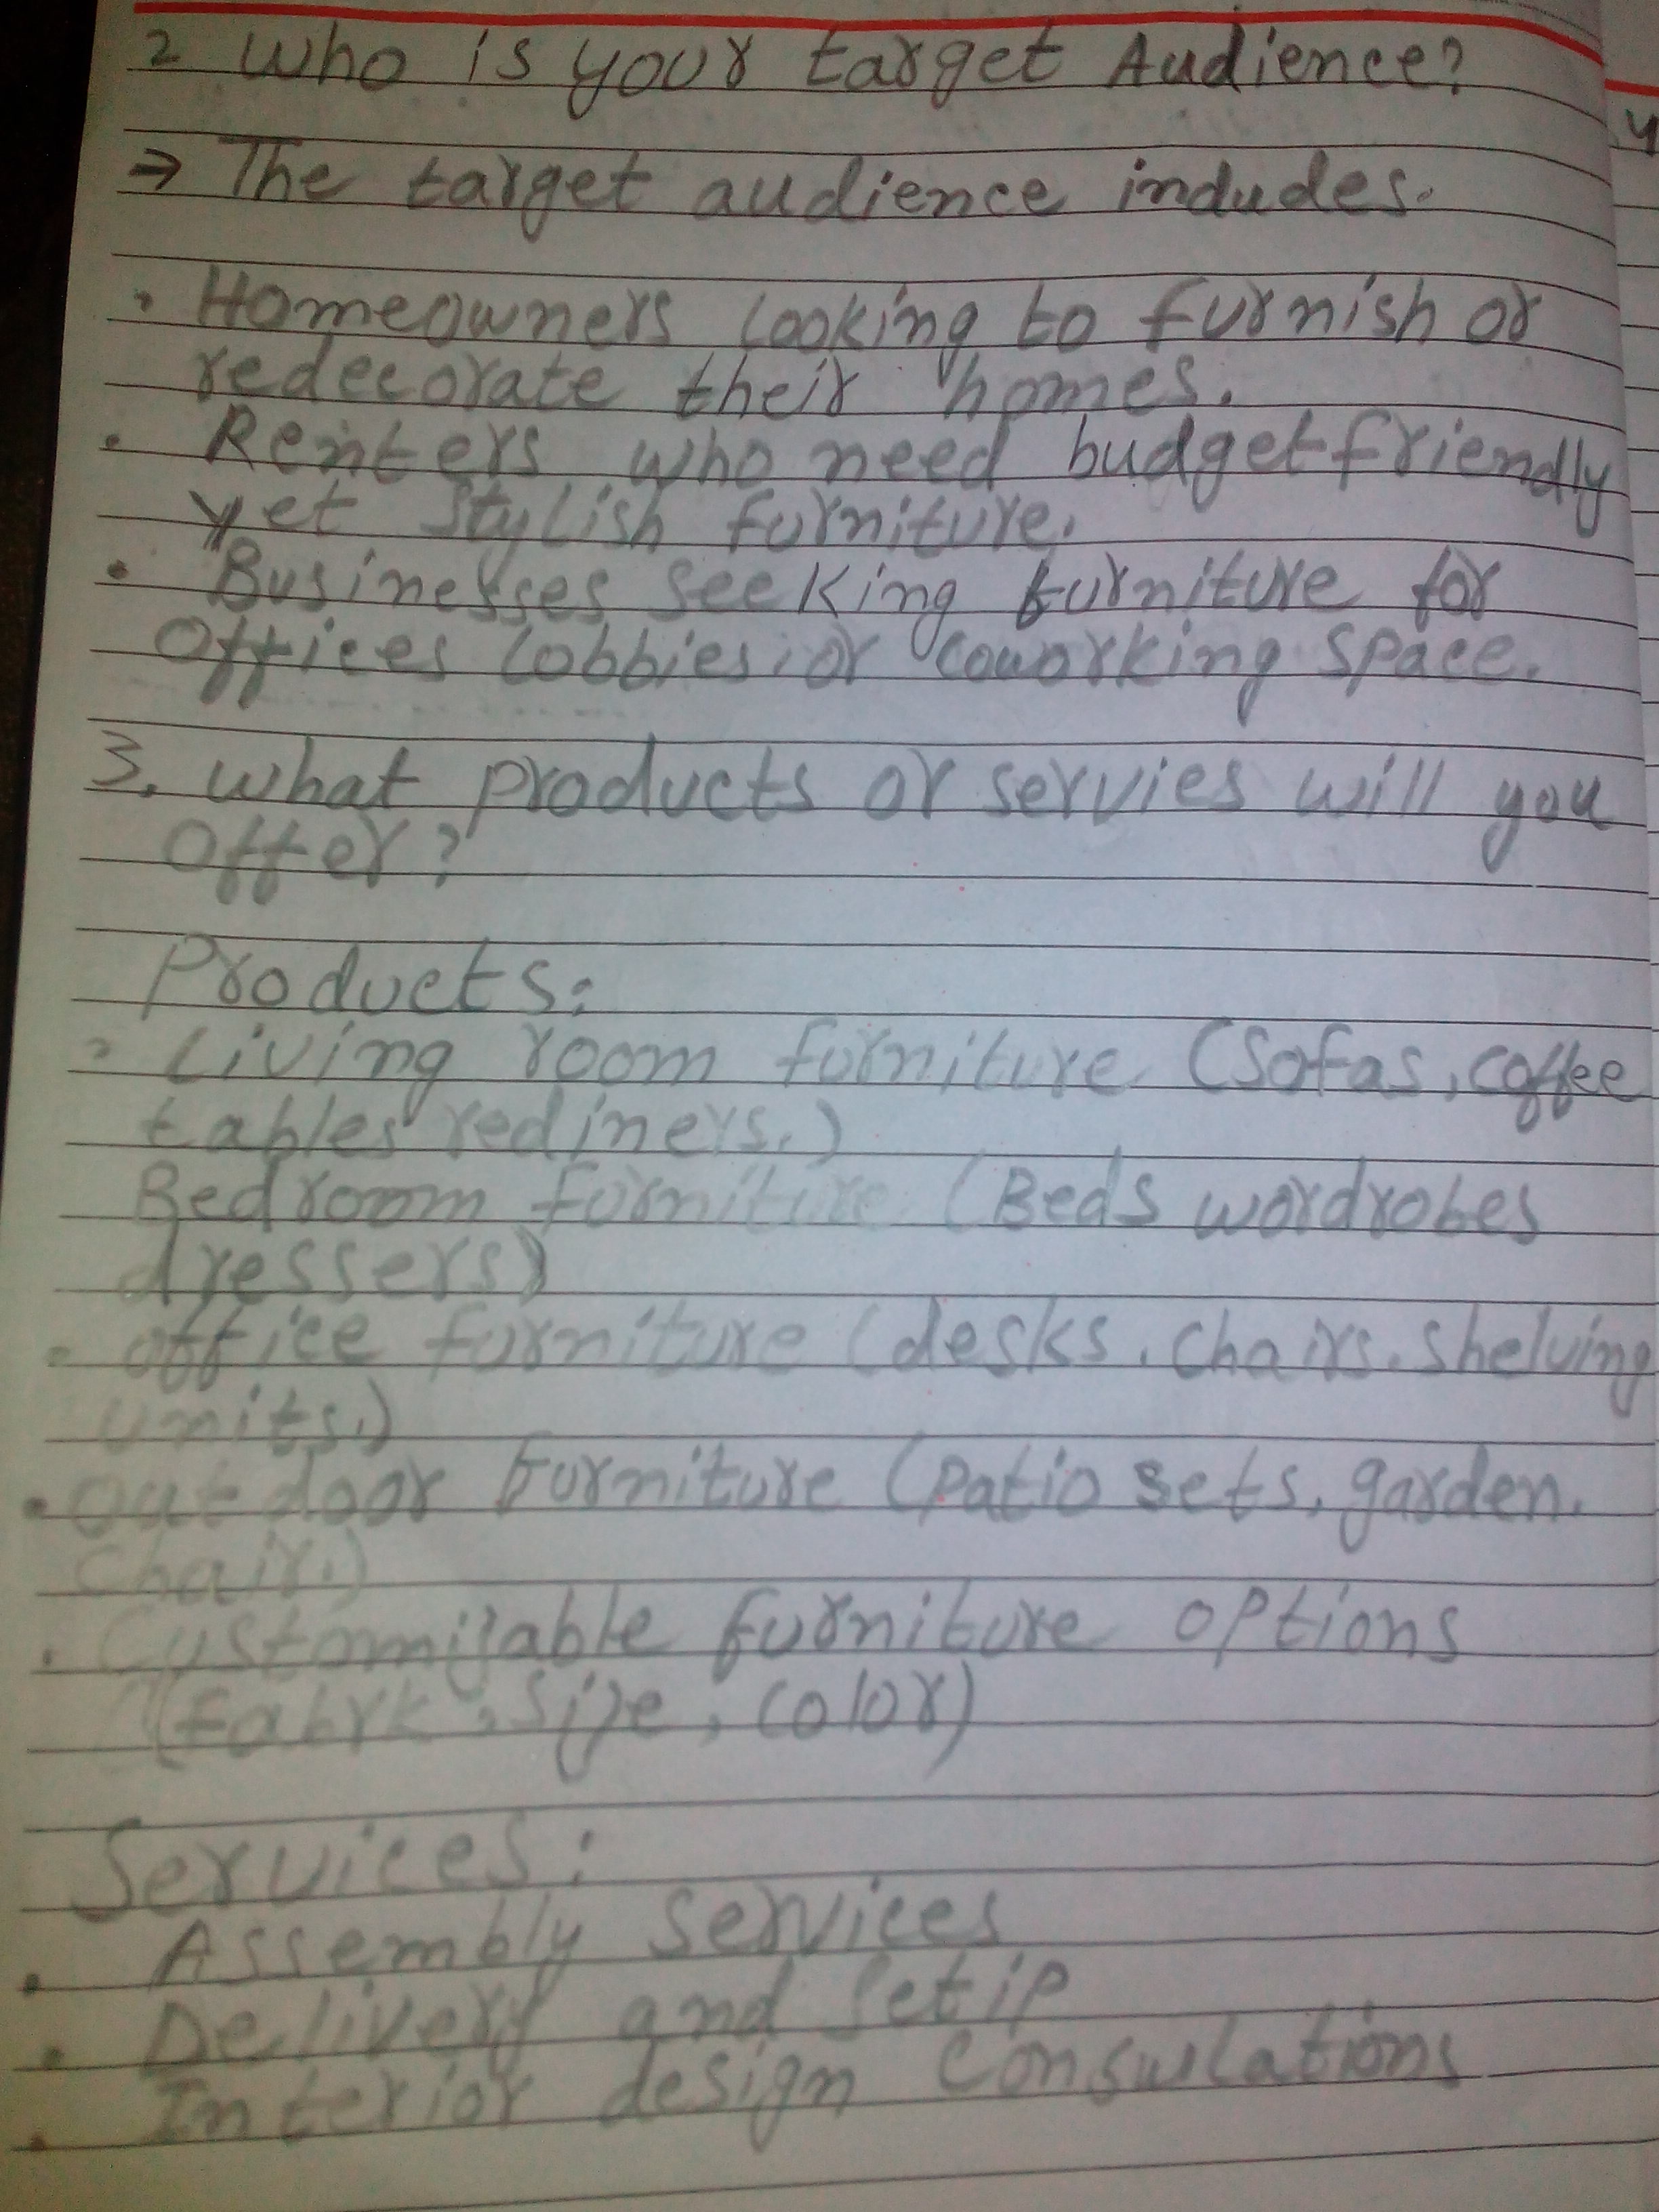 2 Who is your target Audience?
→ The target audience indudes.
• Homeowners looking to furnish or
redecorate their homes.
• Reinters who need budgetfriendly
yet stylish furniture.
• Businesses seeking furniture for
Offices lobbies, or coworking space.
3. What products or servies will you
offer?
Products:
• Living room furniture (Sofas, coffee
tables rediners.)
Bedroom furniture (Beds wardrobes
dressers)
• office furniture (desks, chairs, shelving
units.)
• outdoor furniture (patio sets, garden.
chair.)
• Customijable furniture options
(fabrk, sije, color)
Services:
• Assembly services
• Delivery and setip
• Interior design consulations